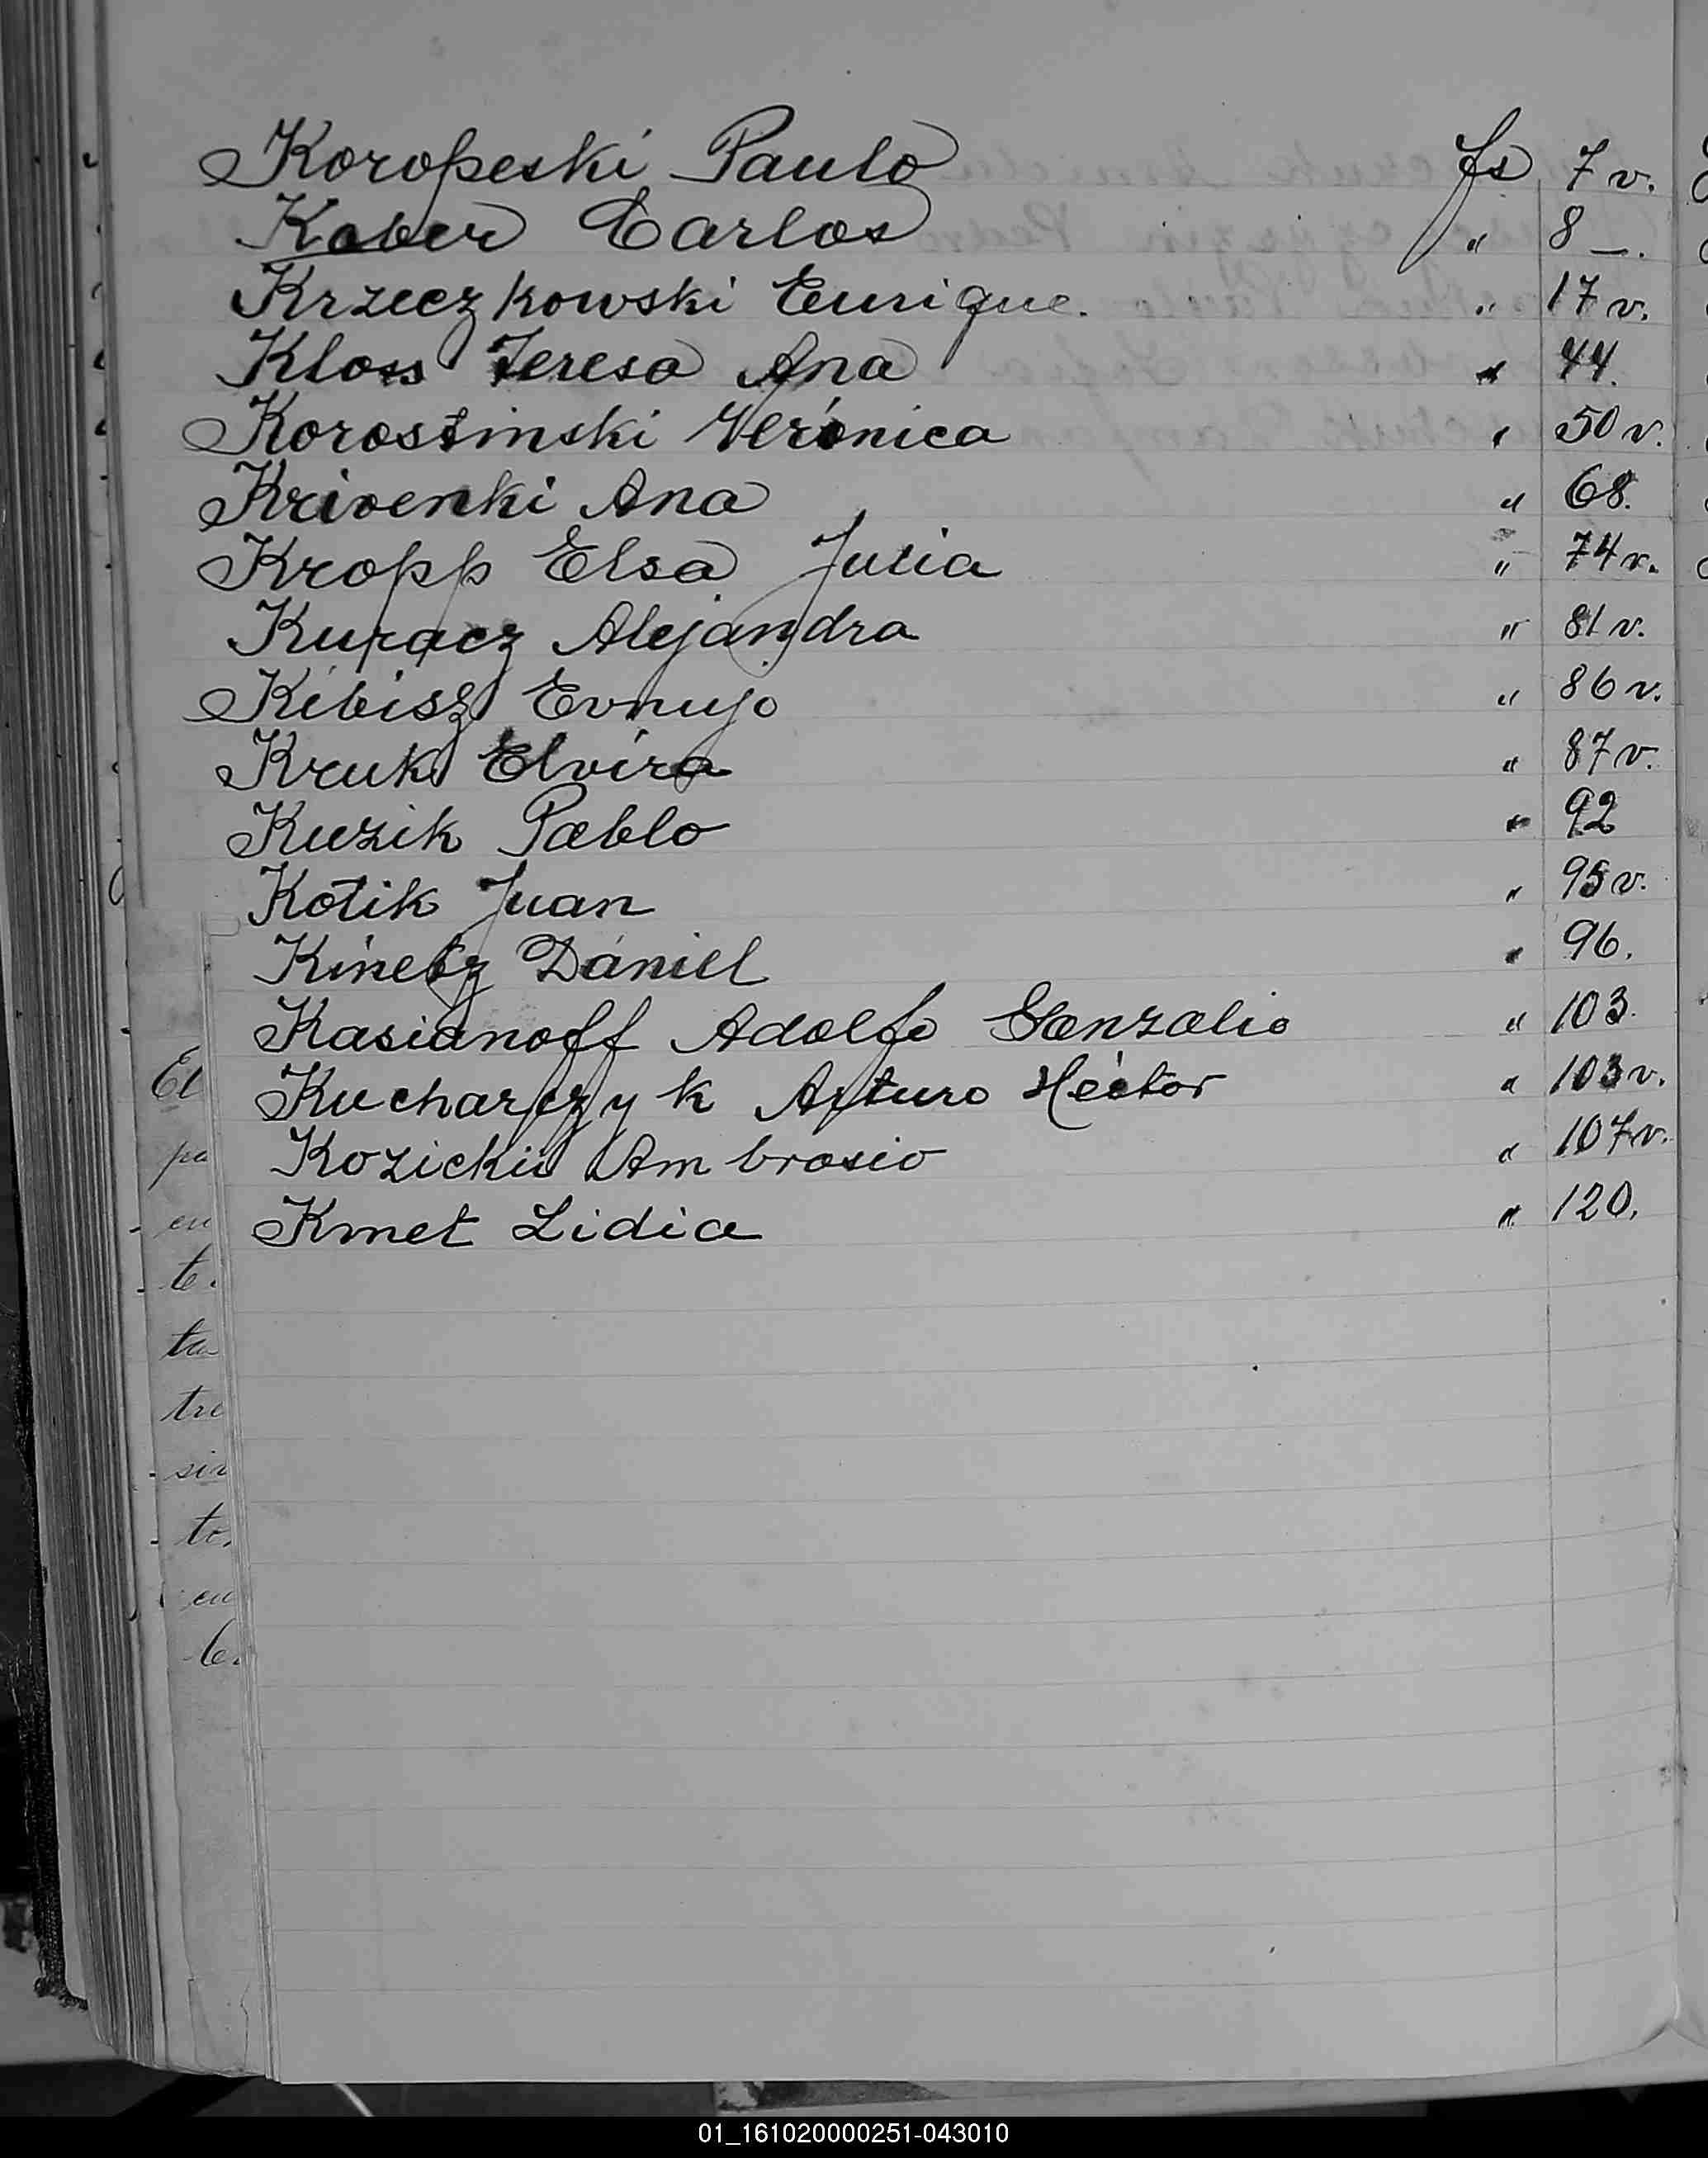 Koropeski Paulo fs 7 v.
Kober Carlos " 8 —.
Krzeczkowski Enrique. " 17 v.
Kloss Teresa Ana " 44.
Korostinski Verónica " 50 v.
Krivenki Ana " 68.
Kropp Elsa Julia " 74 v.
Kupacz Alejandra " 81 v.
Kibisz " 86 v.
Kruk Elvira " 87 v.
Kuzik Pablo " 92
Kotik Juan " 95 v.
Kinetz Daniel " 96.
Kasianoff Adolfo Gonzalio " 103.
Kucharczyk Arturo Héctor " 103 v.
Kozicki Ambrosio " 107 v.
Kmet Lidia " 120.
El
pa
en
te.
ta
tre
sin
to.
en
01_161020000251-043010